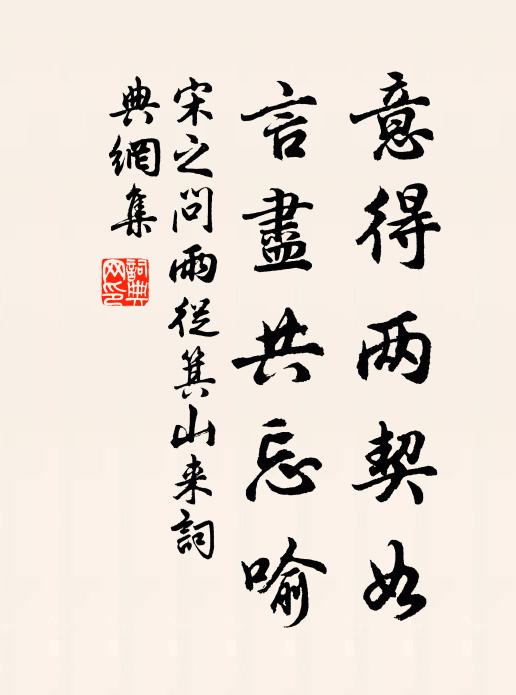 意得两契如
言盡共忘喻
宋之问雨從箕山来詞
典網集
詞典
网印